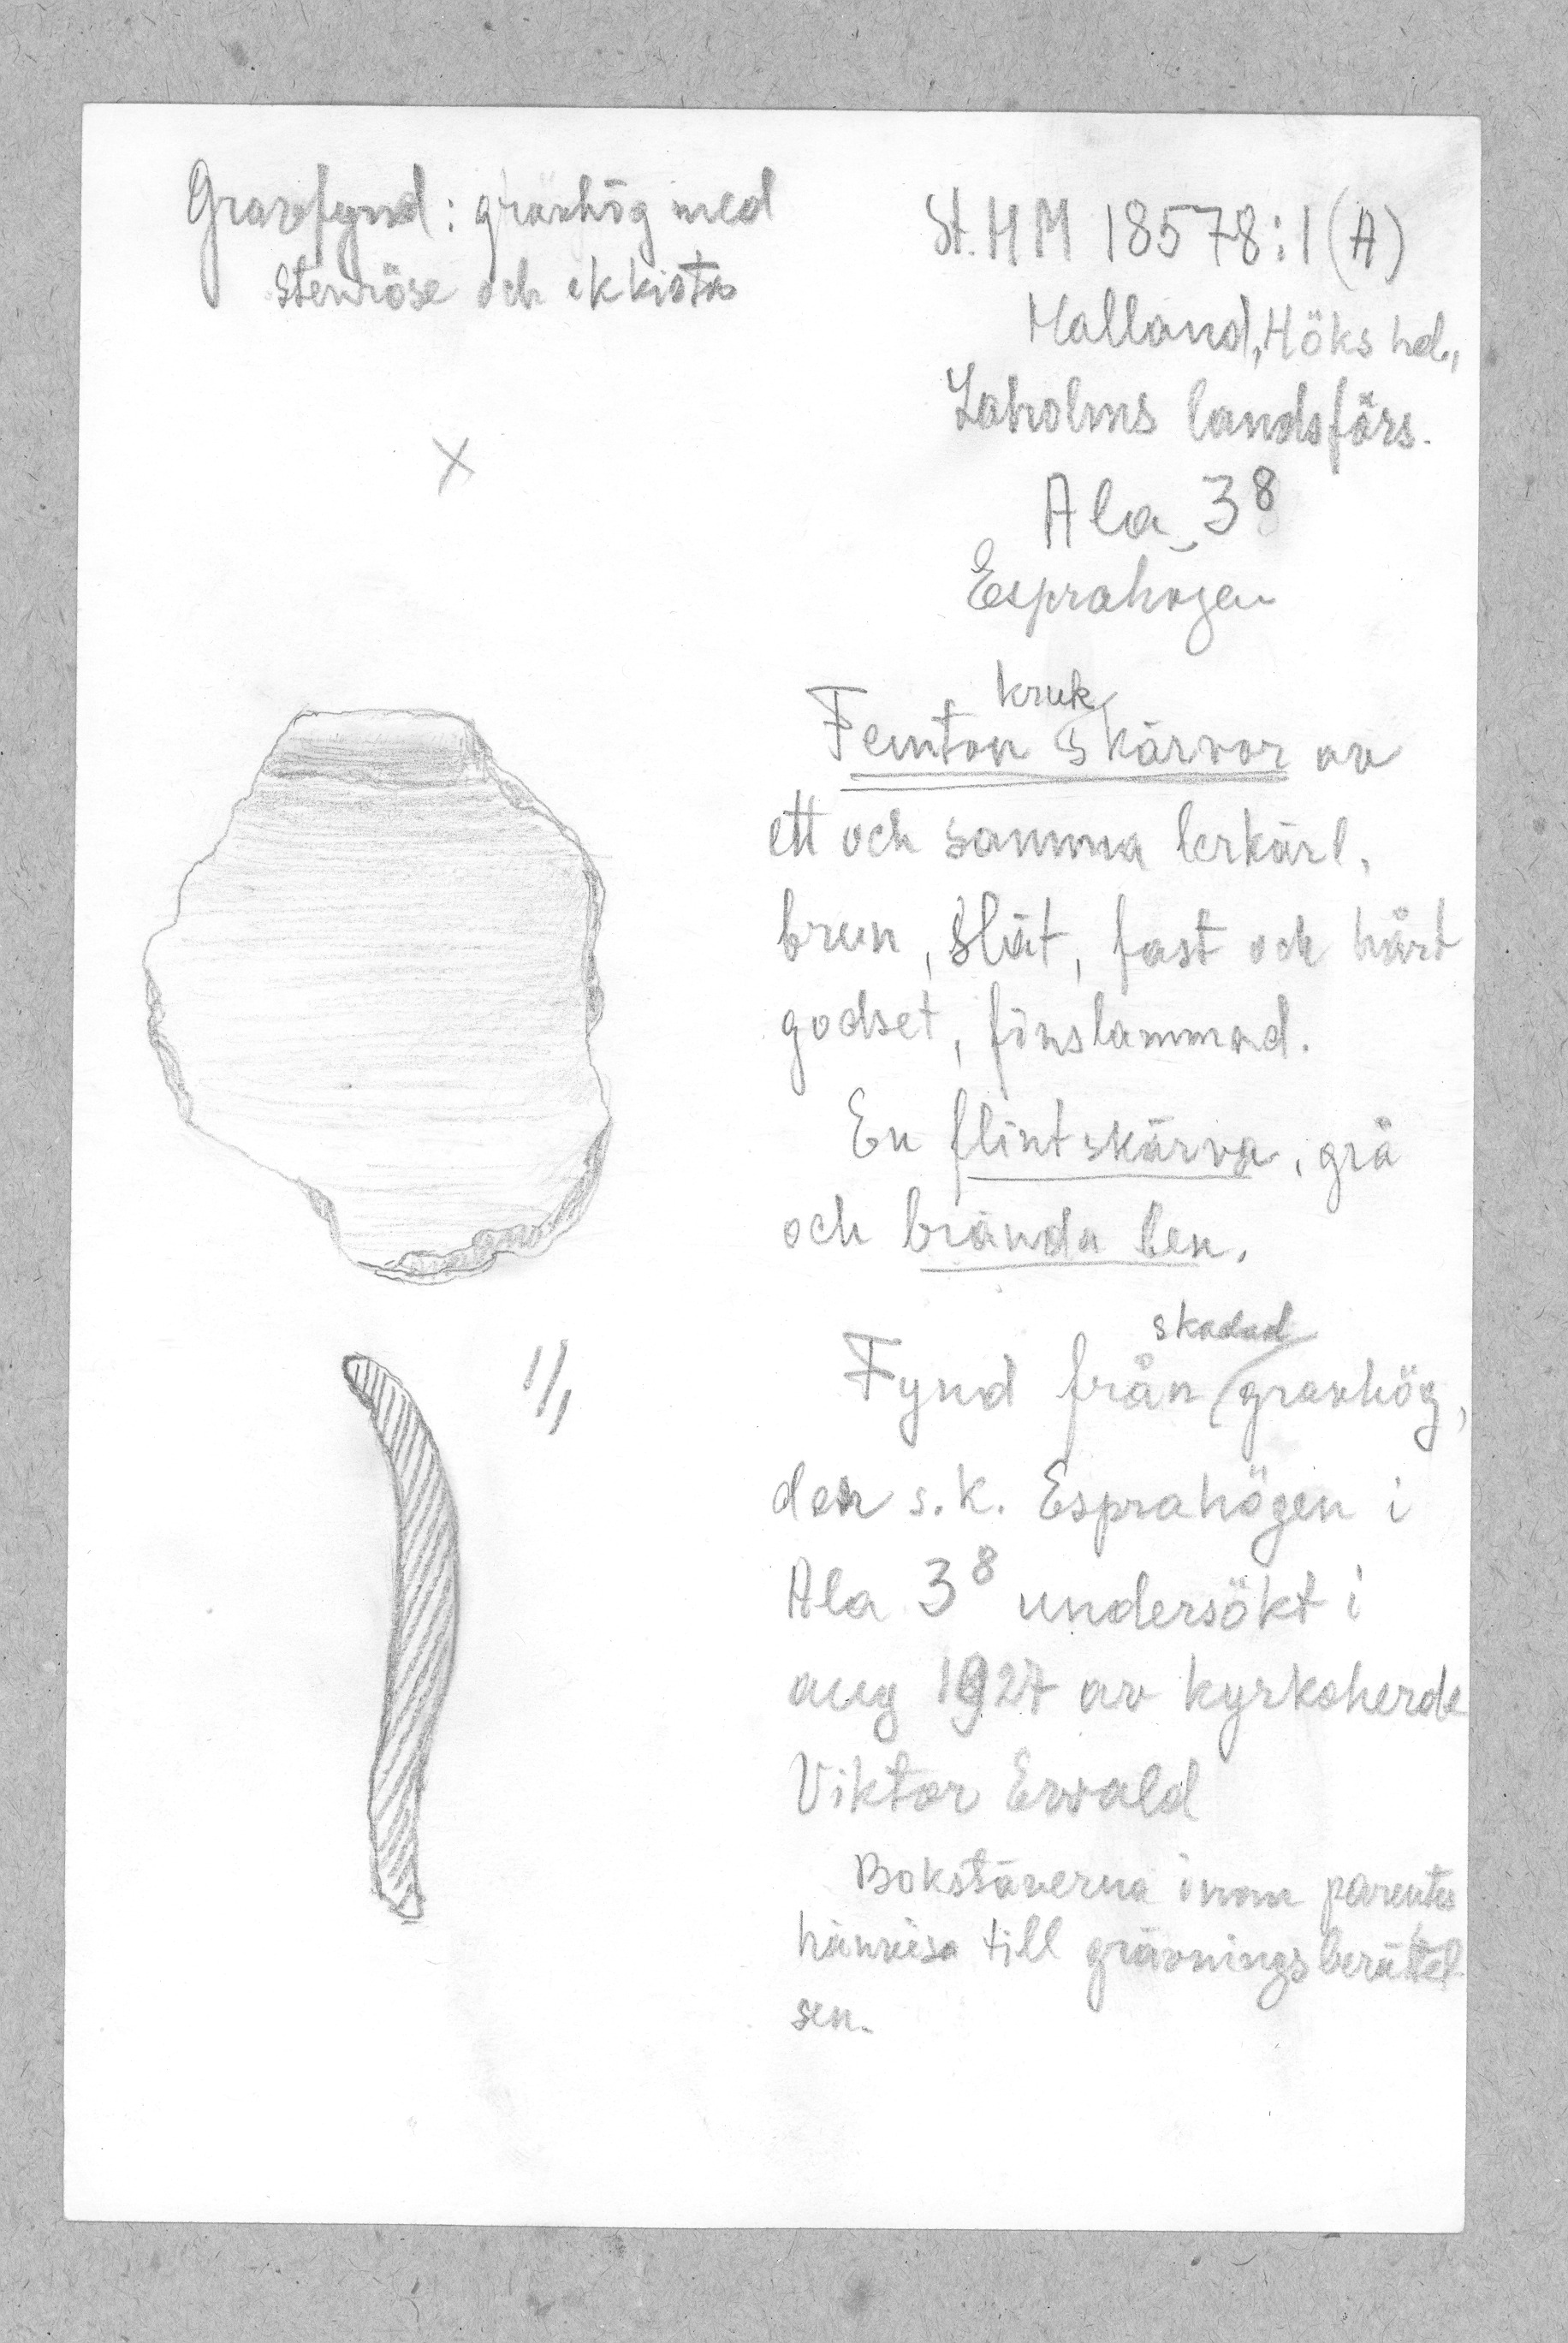 Gravfynd: gravhög med
stenröse och ekkista
St. HM 18578:1 (A)
Halland, Höks hd.,
Laholms landsförs.
Ala 3⁸
Esprahögen
X
kruk
Femton skärvor av
ett och samma lerkärl,
brun, slät, fast och hårt
godset, finslammad.
En flintskärva, grå
och brända ben.
1/1
skadad
Fynd från gravhög,
den s.k. Esprahögen i
Ala 3⁸ undersökt i
aug 1927 av kyrkoherde
Viktor Ewald
Bokstäverna inom parentes
hänvisa till grävningsberättel
sen.